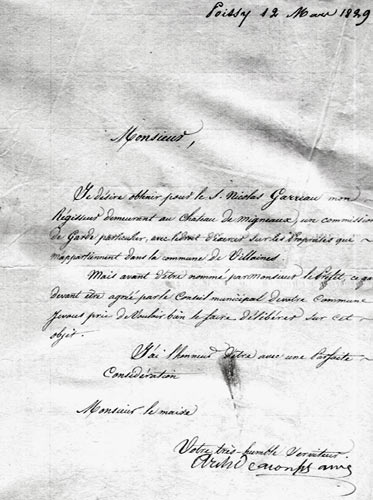 Poissy 12 Mars 1829
Monsieur,
Je désire obtenir pour le S. Nicolas Garreau mon
Régisseur demeurant au Chateau de Migneaux, un commission
de Garde particulier, avec le droit d'exercer sur les Propriétés que
m'appartiennent dans la commune de Villaines.
Mais avant d'être nommé par monsieur le Préfet, ce qu
devant être agréé par le Conseil municipal de votre Commune
Je vous prie de vouloir bien le faire délibérer sur cet
objet.
J'ai l'honneur d'être avec une Parfaite
Considération
Monsieur le maire
Votre très-humble Serviteur.